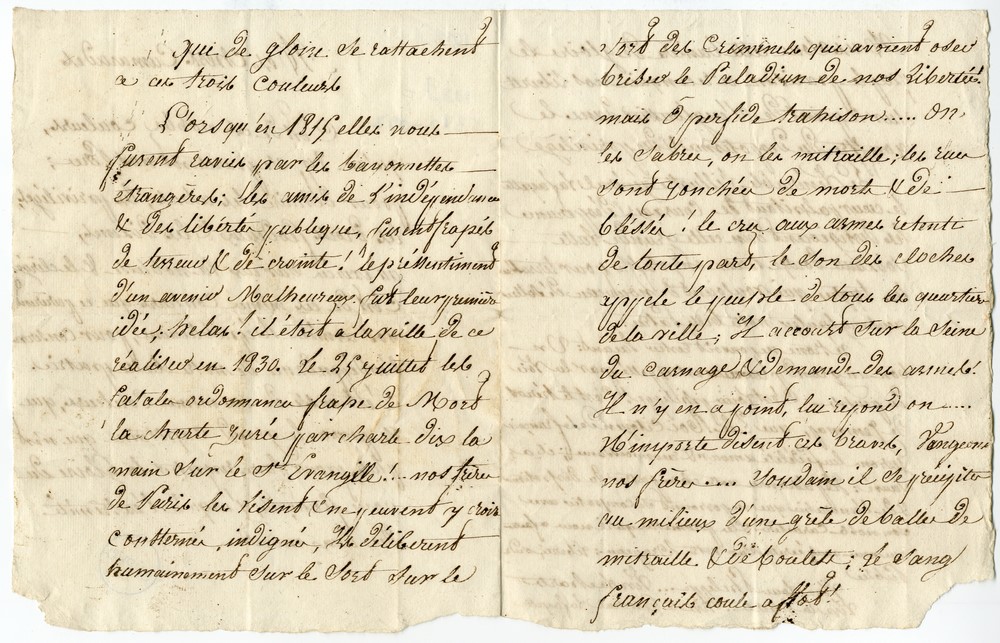 qui de gloire se rattachent
a ces trois couleurs
L'orsqu'en 1815 elles nous
furent ravies par les bayonnettes
étrangères; les amis de l'indépendance
& des libertés publeque, furent frapés
de terreur & de crainte! le pressentiment
d'un avenir Malheureux fut leur premiere
idée; helas! il étoit a la veille de ce
réaliser en 1830. Le 25 juillet les
fatales ordonnances frape de Mort
la charte jurée par charle dix la
main sur le St Evangille! ... nos freres
de Paris les lisent & ne peuvent y croire
consternés, indignés, Ils déliberent
humainement sur le sort sur le
sort des Criminels qui avoient oser
briser le Paladium de nos libertés!
mais O perfide trahison ..... on
les sabres, on les mitraille; les rues
sont jonchées de morts & de
bléssés! le cry aux armes retenti
de toute part, le son des cloches
appele le peuple de tous les quartiers
de la ville; Il accourt sur la seine
du Carnage & demande des armes!
Il n'y en a point, lui repond on ....
N'importe disent ces braves, Vangeons
nos frères .... soudain il se précipite
au milieux d'une grêle de balles de
mitraille & de boulets; le sang
français coule a flot!